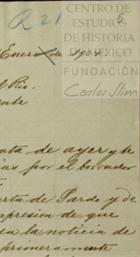 R 21
5
CENTRO DE
ESTUDIOS
DE HISTORIA
DE MÉXICO
FUNDACIÓN
Carlos Slim
Enero de
el Rio.
ata de ayer y te
por el borrador
rta de Pardo y de
xpresion de que
la noticia de
primeramente